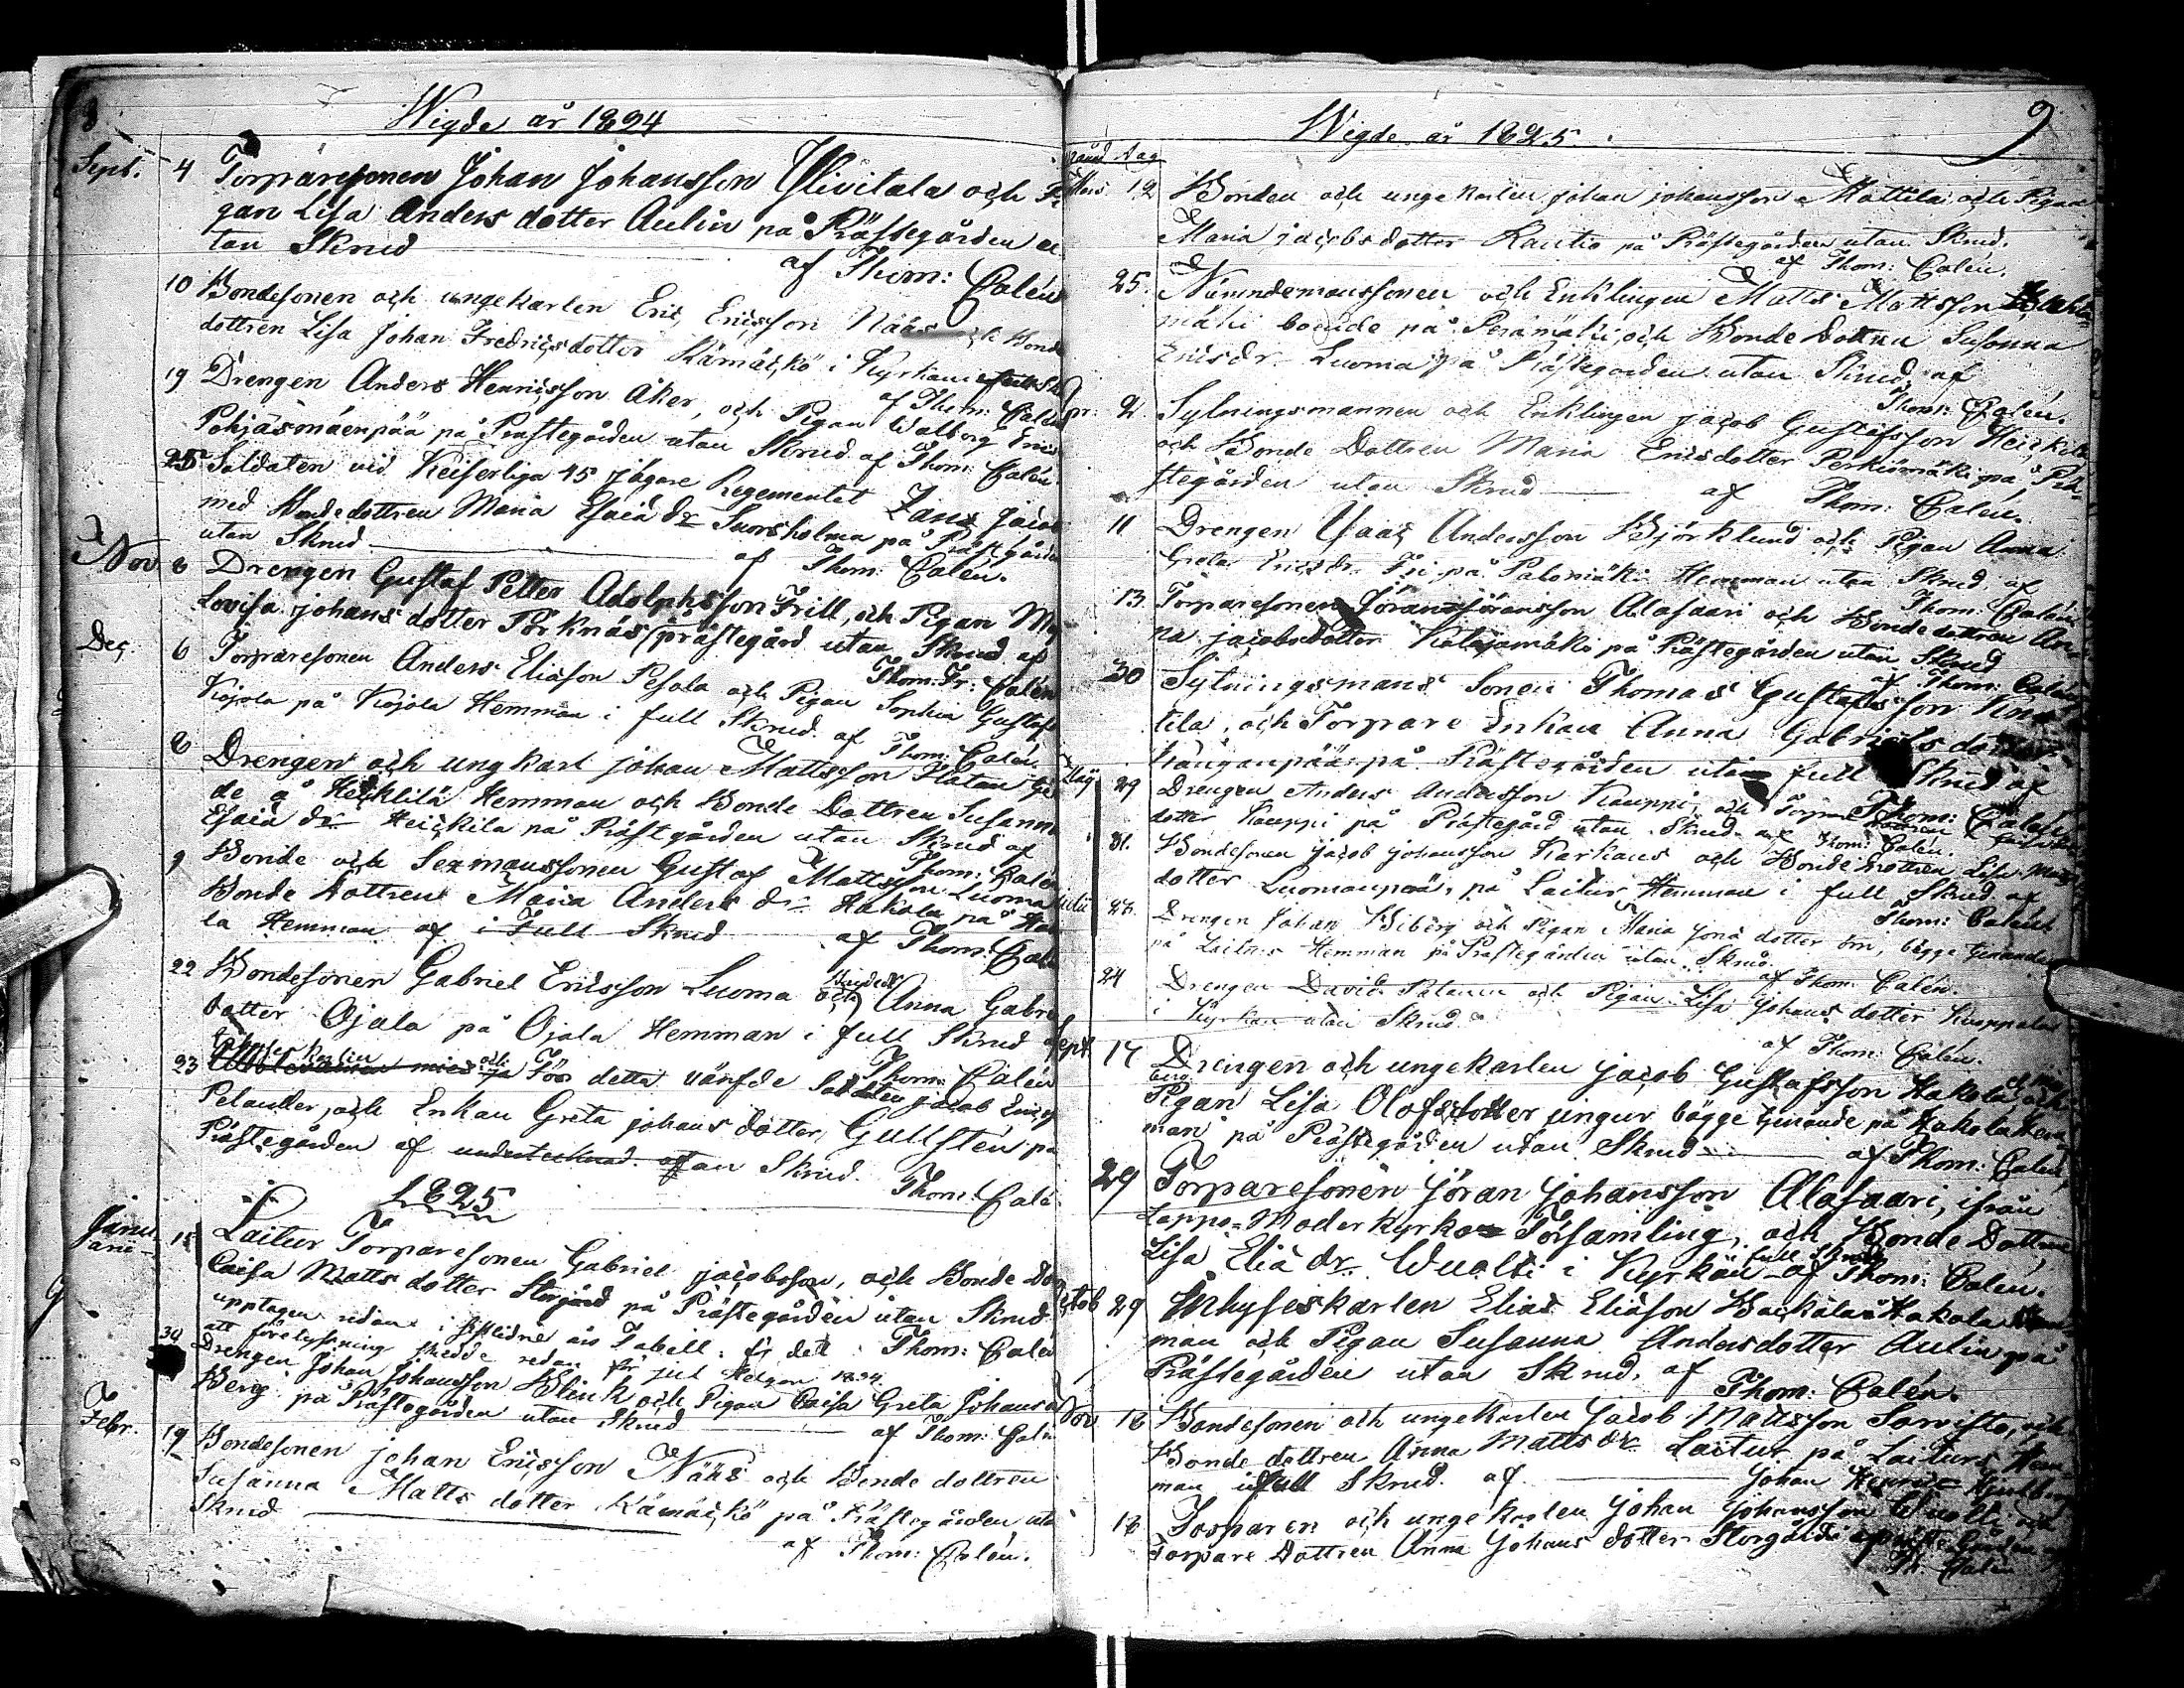 8
Wigde år 1824
Sept. 4 Torparesonen Johan Johansson Ylivitala och Pi
gan Lisa Anders dotter Aulin på Prästegården u
tan Skrud af Thom: Calén
10 Bondesonen och ungekarlen Eric Ericsson Näås och Bonde
dottren Lisa Johan Fredricsdotter Kämäckö i Kyrkan
af Thom: Calén
19 Drengen Anders Henricsson Åker, och Pigan Walborg Erics
Pohjäsmäenpää på Prästegården utan Skrud af Thom: Calén.
25 Soldaten vid Keiserliga 45 jägare Regementet Jacob
med Bondedottren Maria Esaiä dr Suorsholma på Prästgården
utan Skrud af Thom: Calén.
Nov 8 Drengen Gustaf Petter Adolphsson Frill, och Pigan
Lovisa johans dotter Pörknäs prästegård utan Skrud af
Thom. Fr: Calén
Dec. 6 Torparesonen Anders Eliäson Pesola och Pigan Sophia Gustafs
Kojola på Kojola Hemman i full Skrud. af Thom: Calén
8 Drengen och ungkarl johan Mattsson
de å Heickilä Hemman och Bonde Dottren Susanna
Esaiä dr Heickila på Prästgården utan Skrud af
Thom: Calén
9 Bonde och Sexmanssonen Gustaf Mattsson Luoma
Bonde Dottren Maria Anders dr Hakola på Hako
la Hemman af i Full Skrud af Thom: Calén
22 Bondesonen Gabriel Ericsson Luoma och Anna Gabriels
dotter Ojala på Ojala Hemman i full Skrud af
Thom: Calén
23 För detta värfde Soldaten jacob Erics
Pelander, och Enkan Greta johans dotter Gullstén på
Prästegården af undertecknad. utan Skrud. Thom: Calén.
1825
Janu
arii 15 Laitur Torparesonen Gabriel jacobsson, och Bonde Dot
Caisa Matts dotter Storgård på Prästegården utan Skrud
upptagen redan i sistlidne års Tabell: för det Thom: Calén
att förelysning skedde redan för jul Helgen 1824.
30 Drengen Johan Johansson Blink och Pigan Caisa Greta Johans
Berg på Prästegården utan Skrud af Thom: Calén
Febr. 19 Bondesonen johan Ericsson Näås och Bonde dottren
Susanna Matts dotter Kämäckö på Prästegården utan
Skrud af Thom: Calén.
9
Wigde år 1825.
Månad Dag
Mars 12 Bonden och ungekarlen johan johansson Mattila och Pigan
Maria jacobsdotter Rautio på Prästegården utan Skrud.
af Thom: Calén.
25. Nämndemanssonen och Enklingen Matts Mattsson
mäki boende på Peramäki, och Bonde Dottren Susanna
Ericsdr. Luoma på Prästegården utan Skrud, af
Thom: Calén.
Apr: 2. Sytningsmannen och Enklingen jacob Gustafsson Heickila
och Bonde Dottren Maria Ericsdotter Perkiömäki på Prä
stegården utan Skrud af Thom: Calén.
11 Drengen Isaac Andersson Björklund och Pigan Anna
Greta Ericsdr. Fri på Palomäki Hemman utan Skrud. af
Thom: Calén
13. Torparesonen Jöran Jöransson Alasaari och Bondedottren An
na jacobsdotter Katajamäki på Prästegården utan Skrud
af Thom: Calén
30 Sytningsmans Sonen Thomas Gustafsson
tila, och Torpare Enkan Anna Gabriels dotter
kånganpää på Prästegården utan full Skrud af
Thom: Calén
Maj 29 Drengen Anders Andersson Kauppi, och Torpare dottren
dotter Kauppi på Prästegård utan Skrud. af Thom: Calén.
31. Bondesonen jacob johansson Karhaus och Bonde Dottren Lisa Matts
dotter Luomanpää, på Laitur Hemman i full Skrud, af
Thom: Calén
Julii 23. Drengen Johan Wiberg och Pigan Maria Jonä dotter Örn, bägge tjenande
på Laiturs Hemman på Prästegården utan Skrud.
af Thom: Calén.
24 Drengen David Patanen och Pigan Lisa Johans dotter Knoppala
i Kyrkan utan Skrud. af Thom: Calén.
Sept 17 Drengen och ungekarlen jacob Gustafsson Hakola och
Pigan Lisa Olofsdotter jungur bägge tjenande på Hakola Hem
man på Prästegården utan Skrud af Thom: Calén,
29 Torparesonen Jöran Johansson Alasaari, ifrån
Lappo Moderkyrko Församling, och Bonde Dottren
Lisa Eliä dr. Wuolti i Kyrkan full Skrud af Thom: Calén.
Octob 29 Inhyseskarlen Elias Eliäson Backala å Hakola Hem
man och Pigan Susanna Andersdotter Aulin på
Prästegården utan Skrud, af
Thom: Calén.
Nov 18 Bondesonen och ungekarlen Jacob Mattsson Sarvisto, och
Bonde dottren Anna Matts dr. Laitur på Laiturs Hem
man i full Skrud. af Johan Henric
18 Torparen och ungekarlen Johan Johansson Wuolti och
Torpare Dottren Anna Johans dotter Storgård
Th. Calén